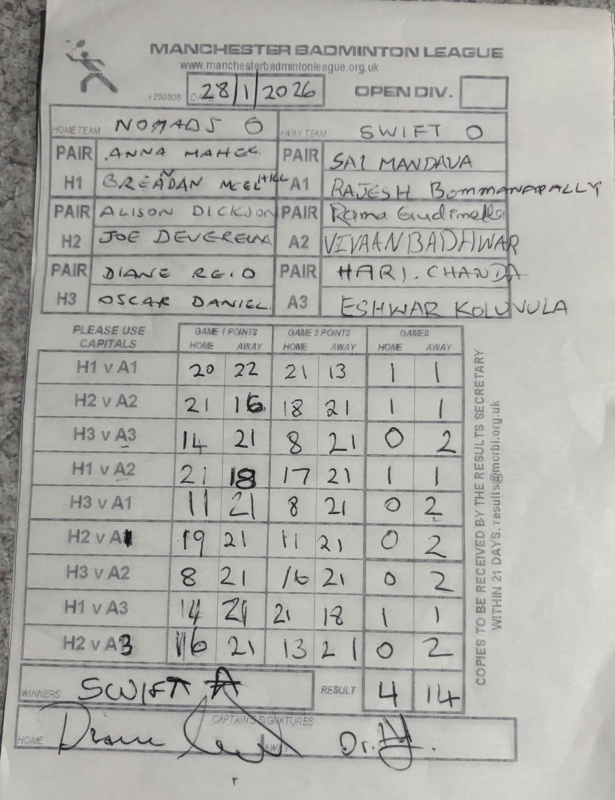 MANCHESTER BADMINTON LEAGUE
www.manchesterbadmintonleague.org.uk
28/1/2026 OPEN DIV.
HOME TEAM NOMADS O AWAY TEAM SWIFT O
PAIR H1 ANNA PAIR A1 SAI MANDAVA
BREANDAN MCELHILL RAJESH BOMMANAPALLY
PAIR H2 ALISON DICKSON PAIR A2 Rama
JOE DEVEREUX VIVAAN BADHWAR
PAIR H3 DIANE REID PAIR A3 HARI. CHANDA
OSCAR DANIEL ESHWAR KOLUVULA
PLEASE USE CAPITALS GAME 1 POINTS GAME 2 POINTS GAMES
HOME AWAY HOME AWAY HOME AWAY
H1 v A1 20 22 21 13 1 1
H2 v A2 21 16 18 21 1 1
H3 v A3 14 21 8 21 0 2
H1 v A2 21 18 17 21 1 1
H3 v A1 11 21 8 21 0 2
H2 v A1 19 21 11 21 0 2
H3 v A2 8 21 16 21 0 2
H1 v A3 14 21 21 18 1 1
H2 v A3 16 21 13 21 0 2
WINNERS SWIFT RESULT 4 14
CAPTAIN'S SIGNATURES
HOME Diane AWAY Dr.
COPIES TO BE RECEIVED BY THE RESULTS SECRETARY
WITHIN 21 DAYS. results@mcrbl.org.uk